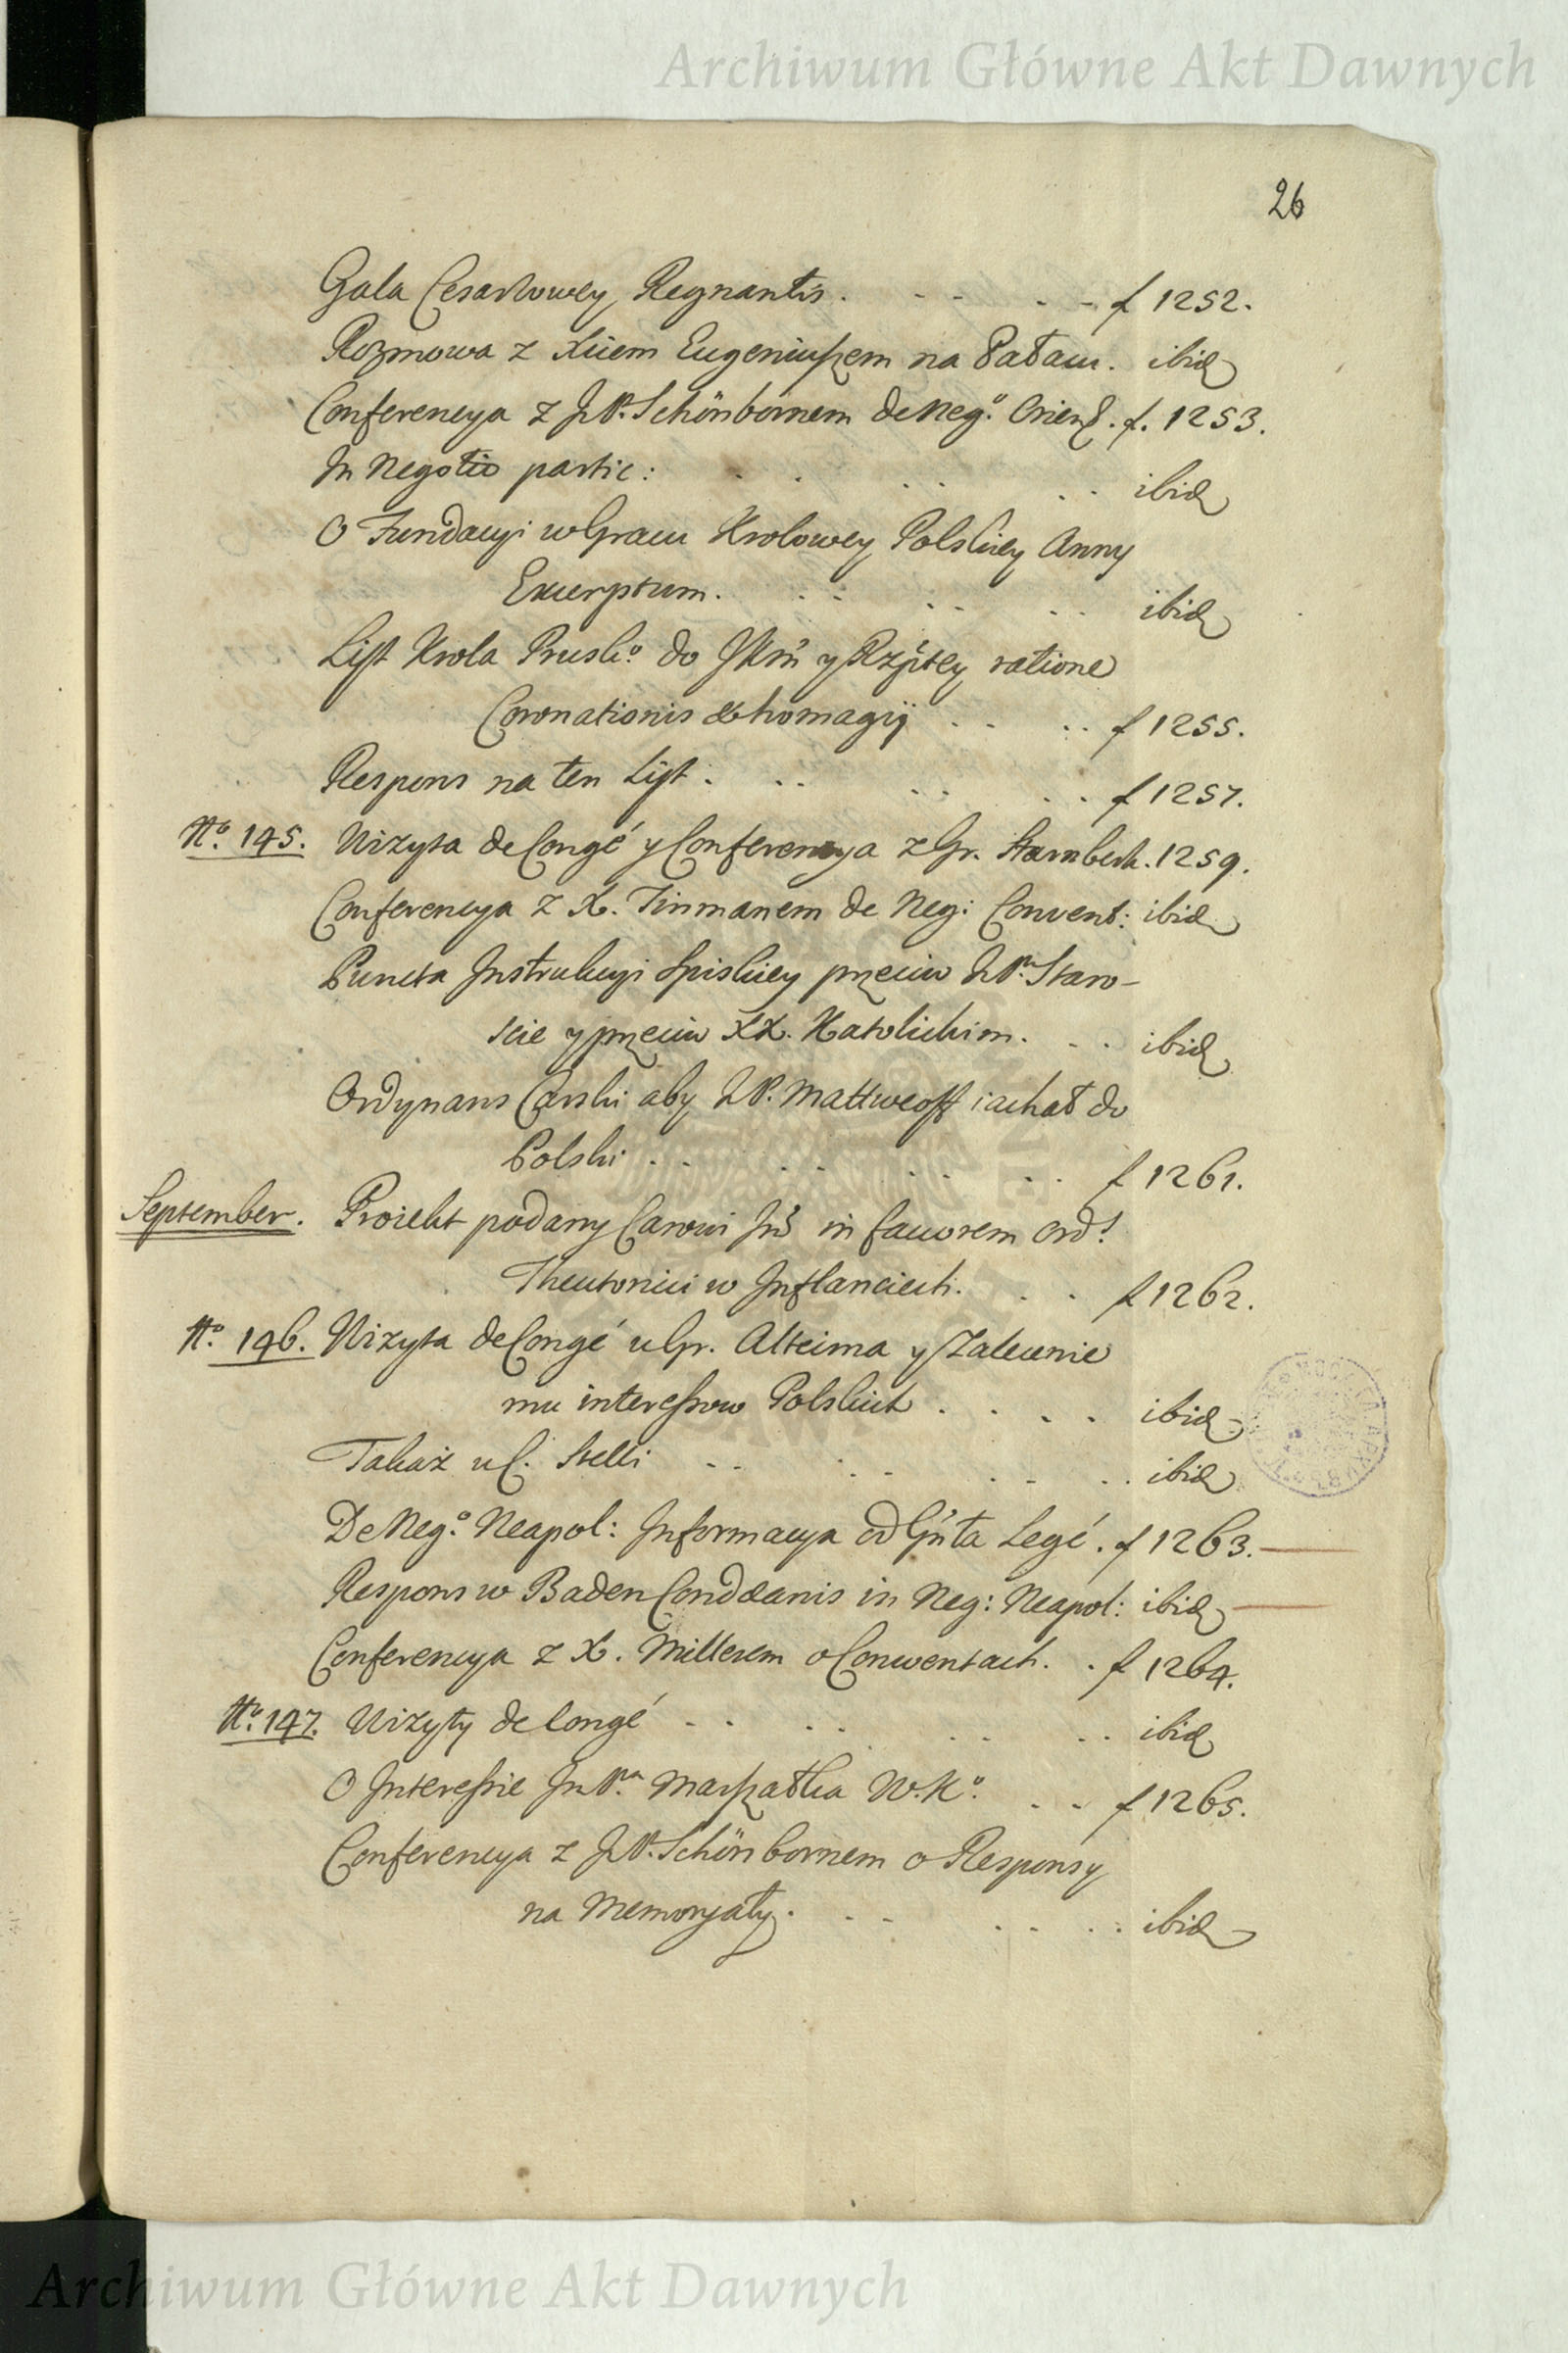 Archiwum Główne Akt Dawnych
26
Gala Cesarzowey Regnantis . f 1252.
Rozmowa z Xciem Eugeniuszem na Pałacu. ibid
Conferencya z JP. Schönbornem de Neg.º Orient. f. 1253.
In Negotio partic: ibid
O Fundacyi w Gracu Krolowey Polskiey Anny
Excerptum. ibid
List Krola Prusk.º do JKM y Rzptey ratione
Coronationis & homagij f 1255.
Respons na ten List . f 1257.
Nº. 145. Wizyta de Congé y Conferencya z Gr. Starnberk. 1259.
Conferencya z X. Tinmanem de Neg: Convent: ibid
Puncta Instrukcyi Spiskiey przeciw JP. Staro-
scie y przeciw XX. Katolickim. ibid
Ordynans Carski aby JP. Mattweoff iachał do
Polski f 1261.
September. Proiekt podany Carowi Jm in favorem Ord!
Theutonici w Inflanciech. f 1262.
Nº. 146. Wizyta de Congé u Gr. Alteima y Zalecenie
mu interessow Polskich ibid
Takaż u C. Stelli ibid
De Neg.º Neapol: Informacya od Gńta Legé. f 1263.
Respons w Baden Conddanis in Neg: Neapol: ibid
Conferencya z X. Millerem o Conwentach. f 1264.
Nº. 147. Wizyty de Congé ibid
O Interessie JmPª Marszałka W. Kº. f 1265.
Conferencya z JP. Schönbornem o Responsy
na Memoryały. ibid
Archiwum Główne Akt Dawnych